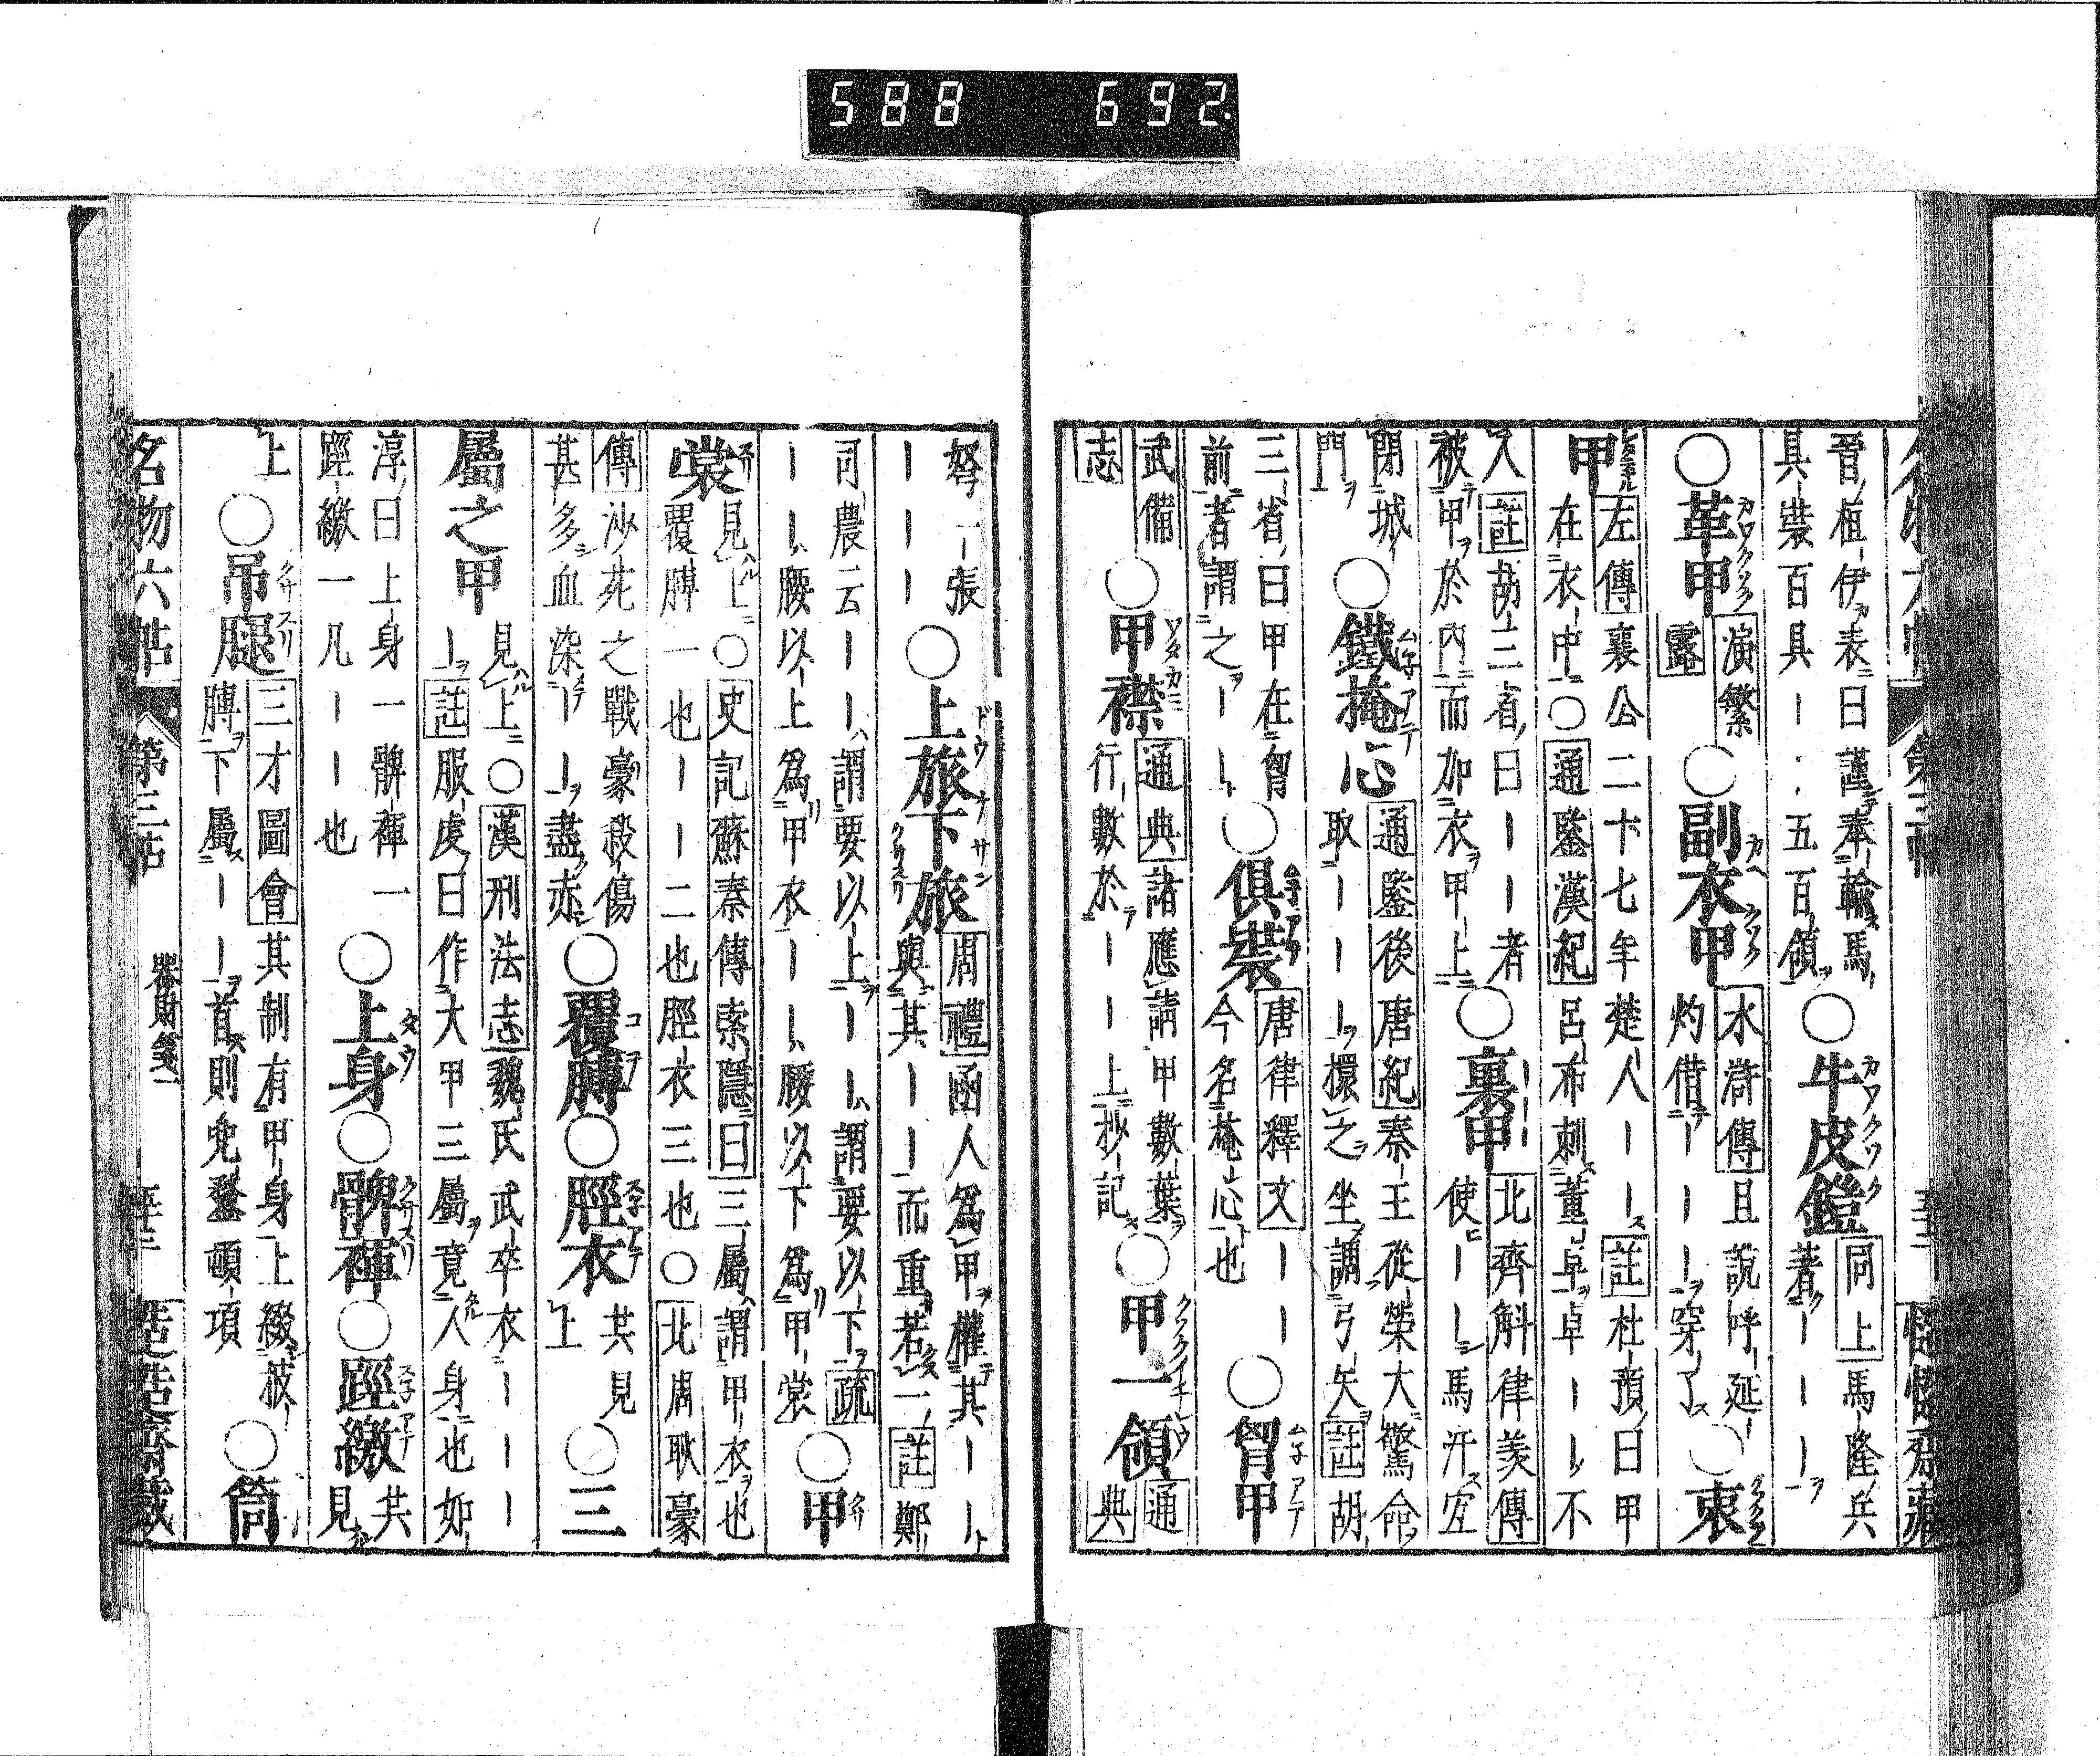 588 692
晉桓伊表曰謹奉輸馬
具裝百具｜・五百領
○牛皮鎧 カワクソク
同上馬隆兵
著｜｜｜｜ヲ
○革甲 カワクソク
演繁
露
○副衣甲
水滸傳且說呼延
灼借｜｜｜穿了
○衷
甲
左傳襄公二十七年楚人｜｜註杜預曰甲
在衣中○通鑑漢紀呂布刺董卓卓｜｜不
入註胡三省曰｜｜者
被甲於內而加衣甲上
○裏甲
北齊斛律羨傳
使｜｜馬汗宜
閉城
門
○鐵掩心 ムネアテ
通鑑後唐紀秦王從榮大驚命
取｜｜｜擐之坐調弓矢註胡
三省曰甲在胷
前者謂之｜｜
○俱裝
唐律釋文｜｜
今名掩心也
○胷甲 ムネアテ
武備
志
○甲襟
通典諸應請甲數葉
行數於｜｜上抄記
○甲一領
通
典
弩一張
｜｜｜
○上旅下旅
周禮函人爲甲權其｜｜
與其｜｜而重若一註鄭
司農云｜｜謂要以上｜｜謂要以下疏
｜｜腰以上爲甲衣｜｜腰以下爲甲裳
○甲
裳
見上○史記蘇秦傳索隱曰三屬謂甲衣也
覆膊一也｜｜二也脛衣三也○北周耿豪
傳沙苑之戰豪殺傷
甚多血染｜｜盡赤
○覆膊 コテ○脛衣 スネアテ
共見
上
○三
屬之甲
見上○漢刑法志魏氏武卒衣｜｜｜
｜註服虔曰作大甲三屬竟人身也如
淳曰上身一髀褌一
踁繳一凡｜｜也
○上身○髀褌○踁繳 スネアテ
共
見
上
○吊腿
三才圖會其制有甲身上綴披
膊下屬｜｜首則兜鍪頓項
○筒
名物六帖 第三帖 器財箋二